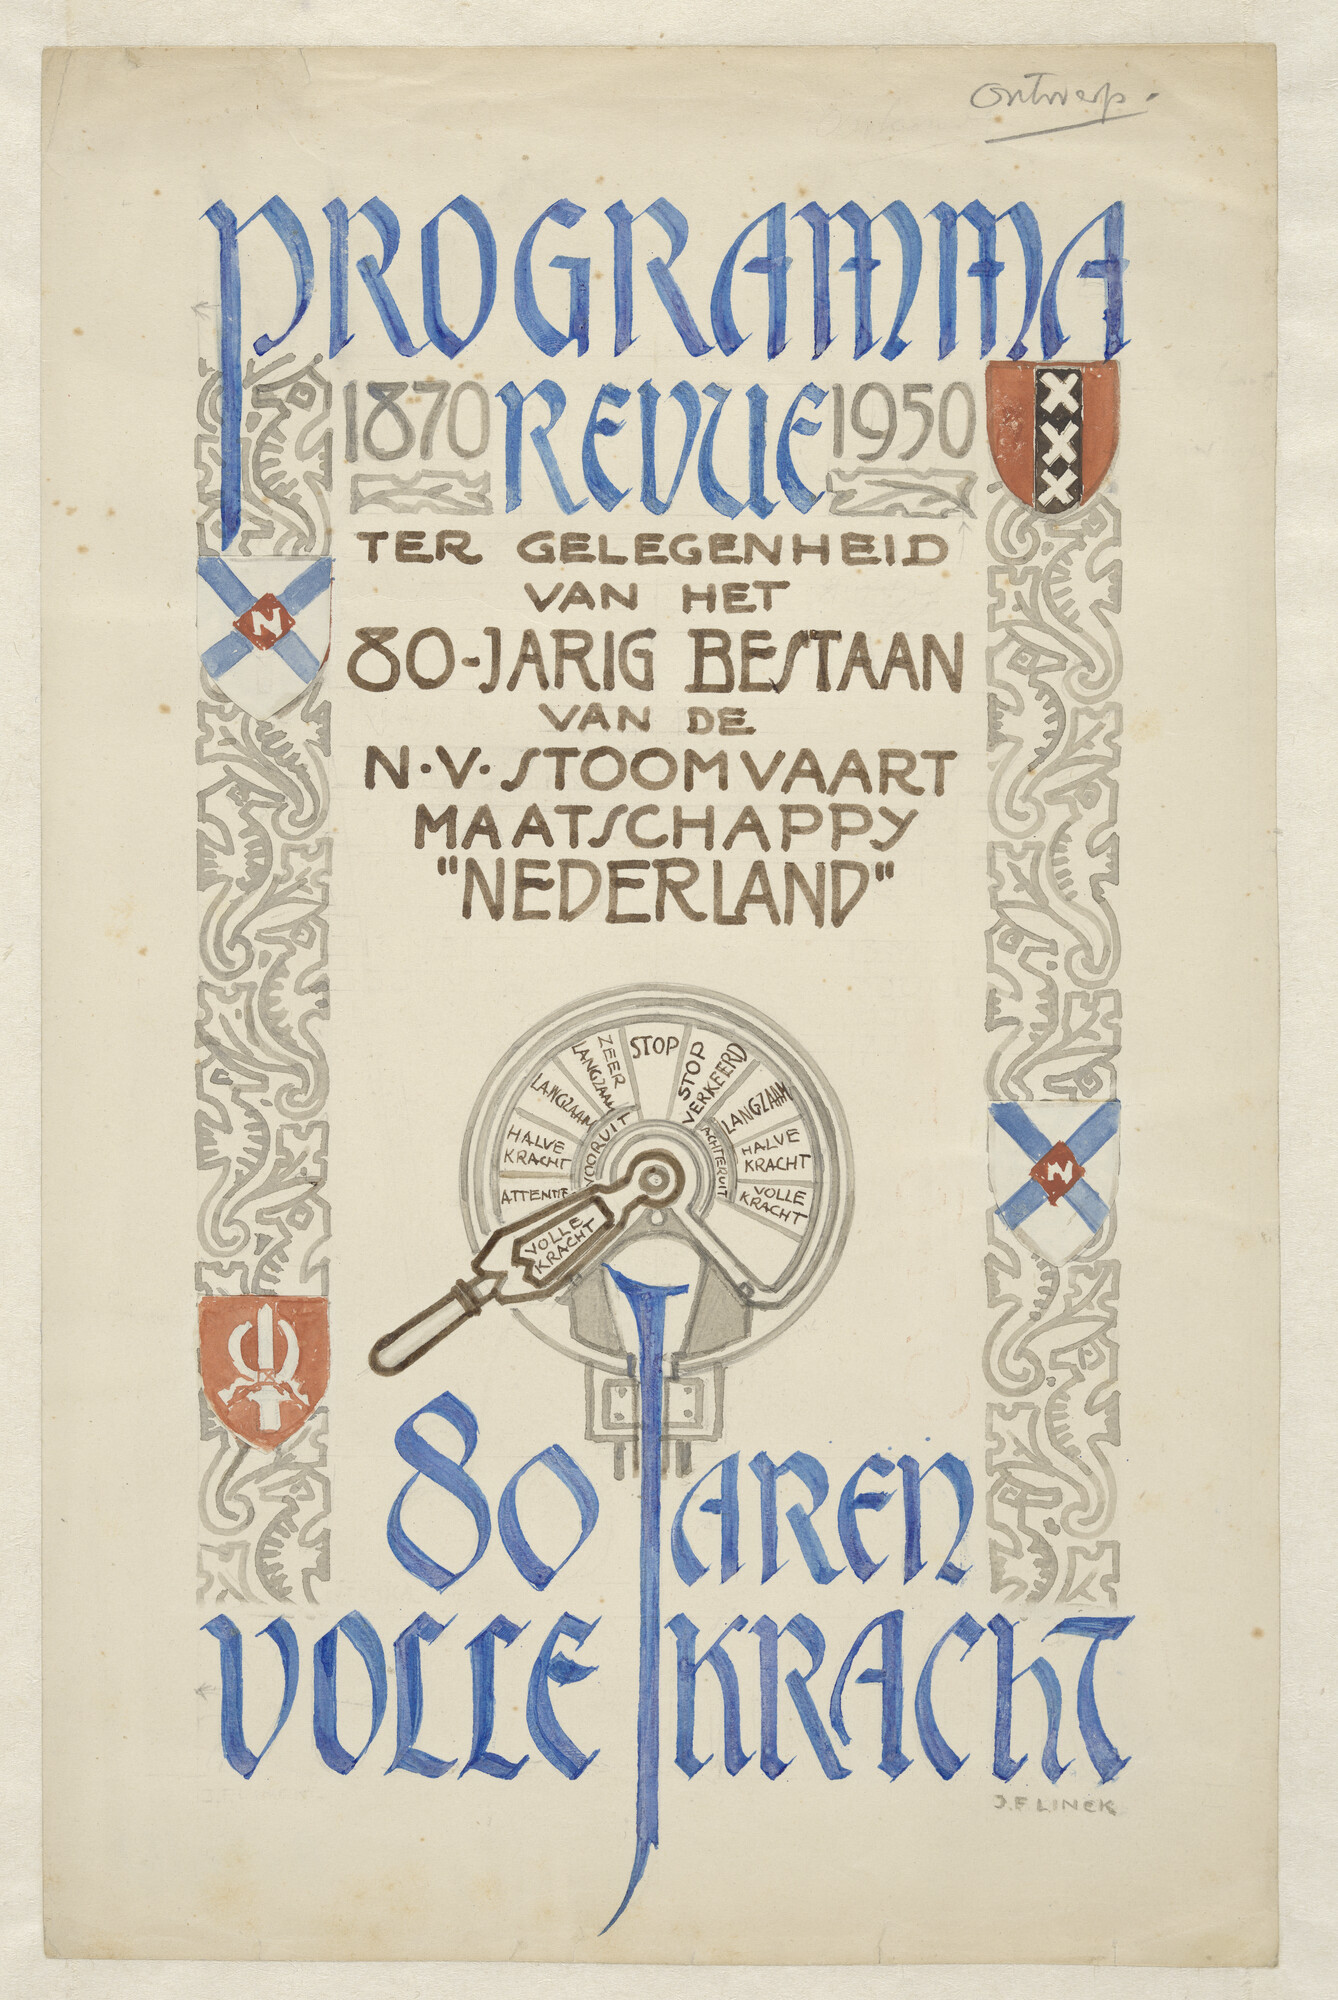 Ontwerp.
PROGRAMMA
1870 REVUE 1950
TER GELEGENHEID
VAN HET
80-JARIG BESTAAN
VAN DE
N.V. STOOMVAART
MAATSCHAPPY
"NEDERLAND"
N
N
STOP
ZEER LANGZAAM
LANGZAAM
HALVE KRACHT
ATTENTIE
VOLLE KRACHT
VOORUIT
STOP VERKEERD
LANGZAAM
HALVE KRACHT
VOLLE KRACHT
ACHTERUIT
80 JAREN
VOLLE KRACHT
J.F. LINCK